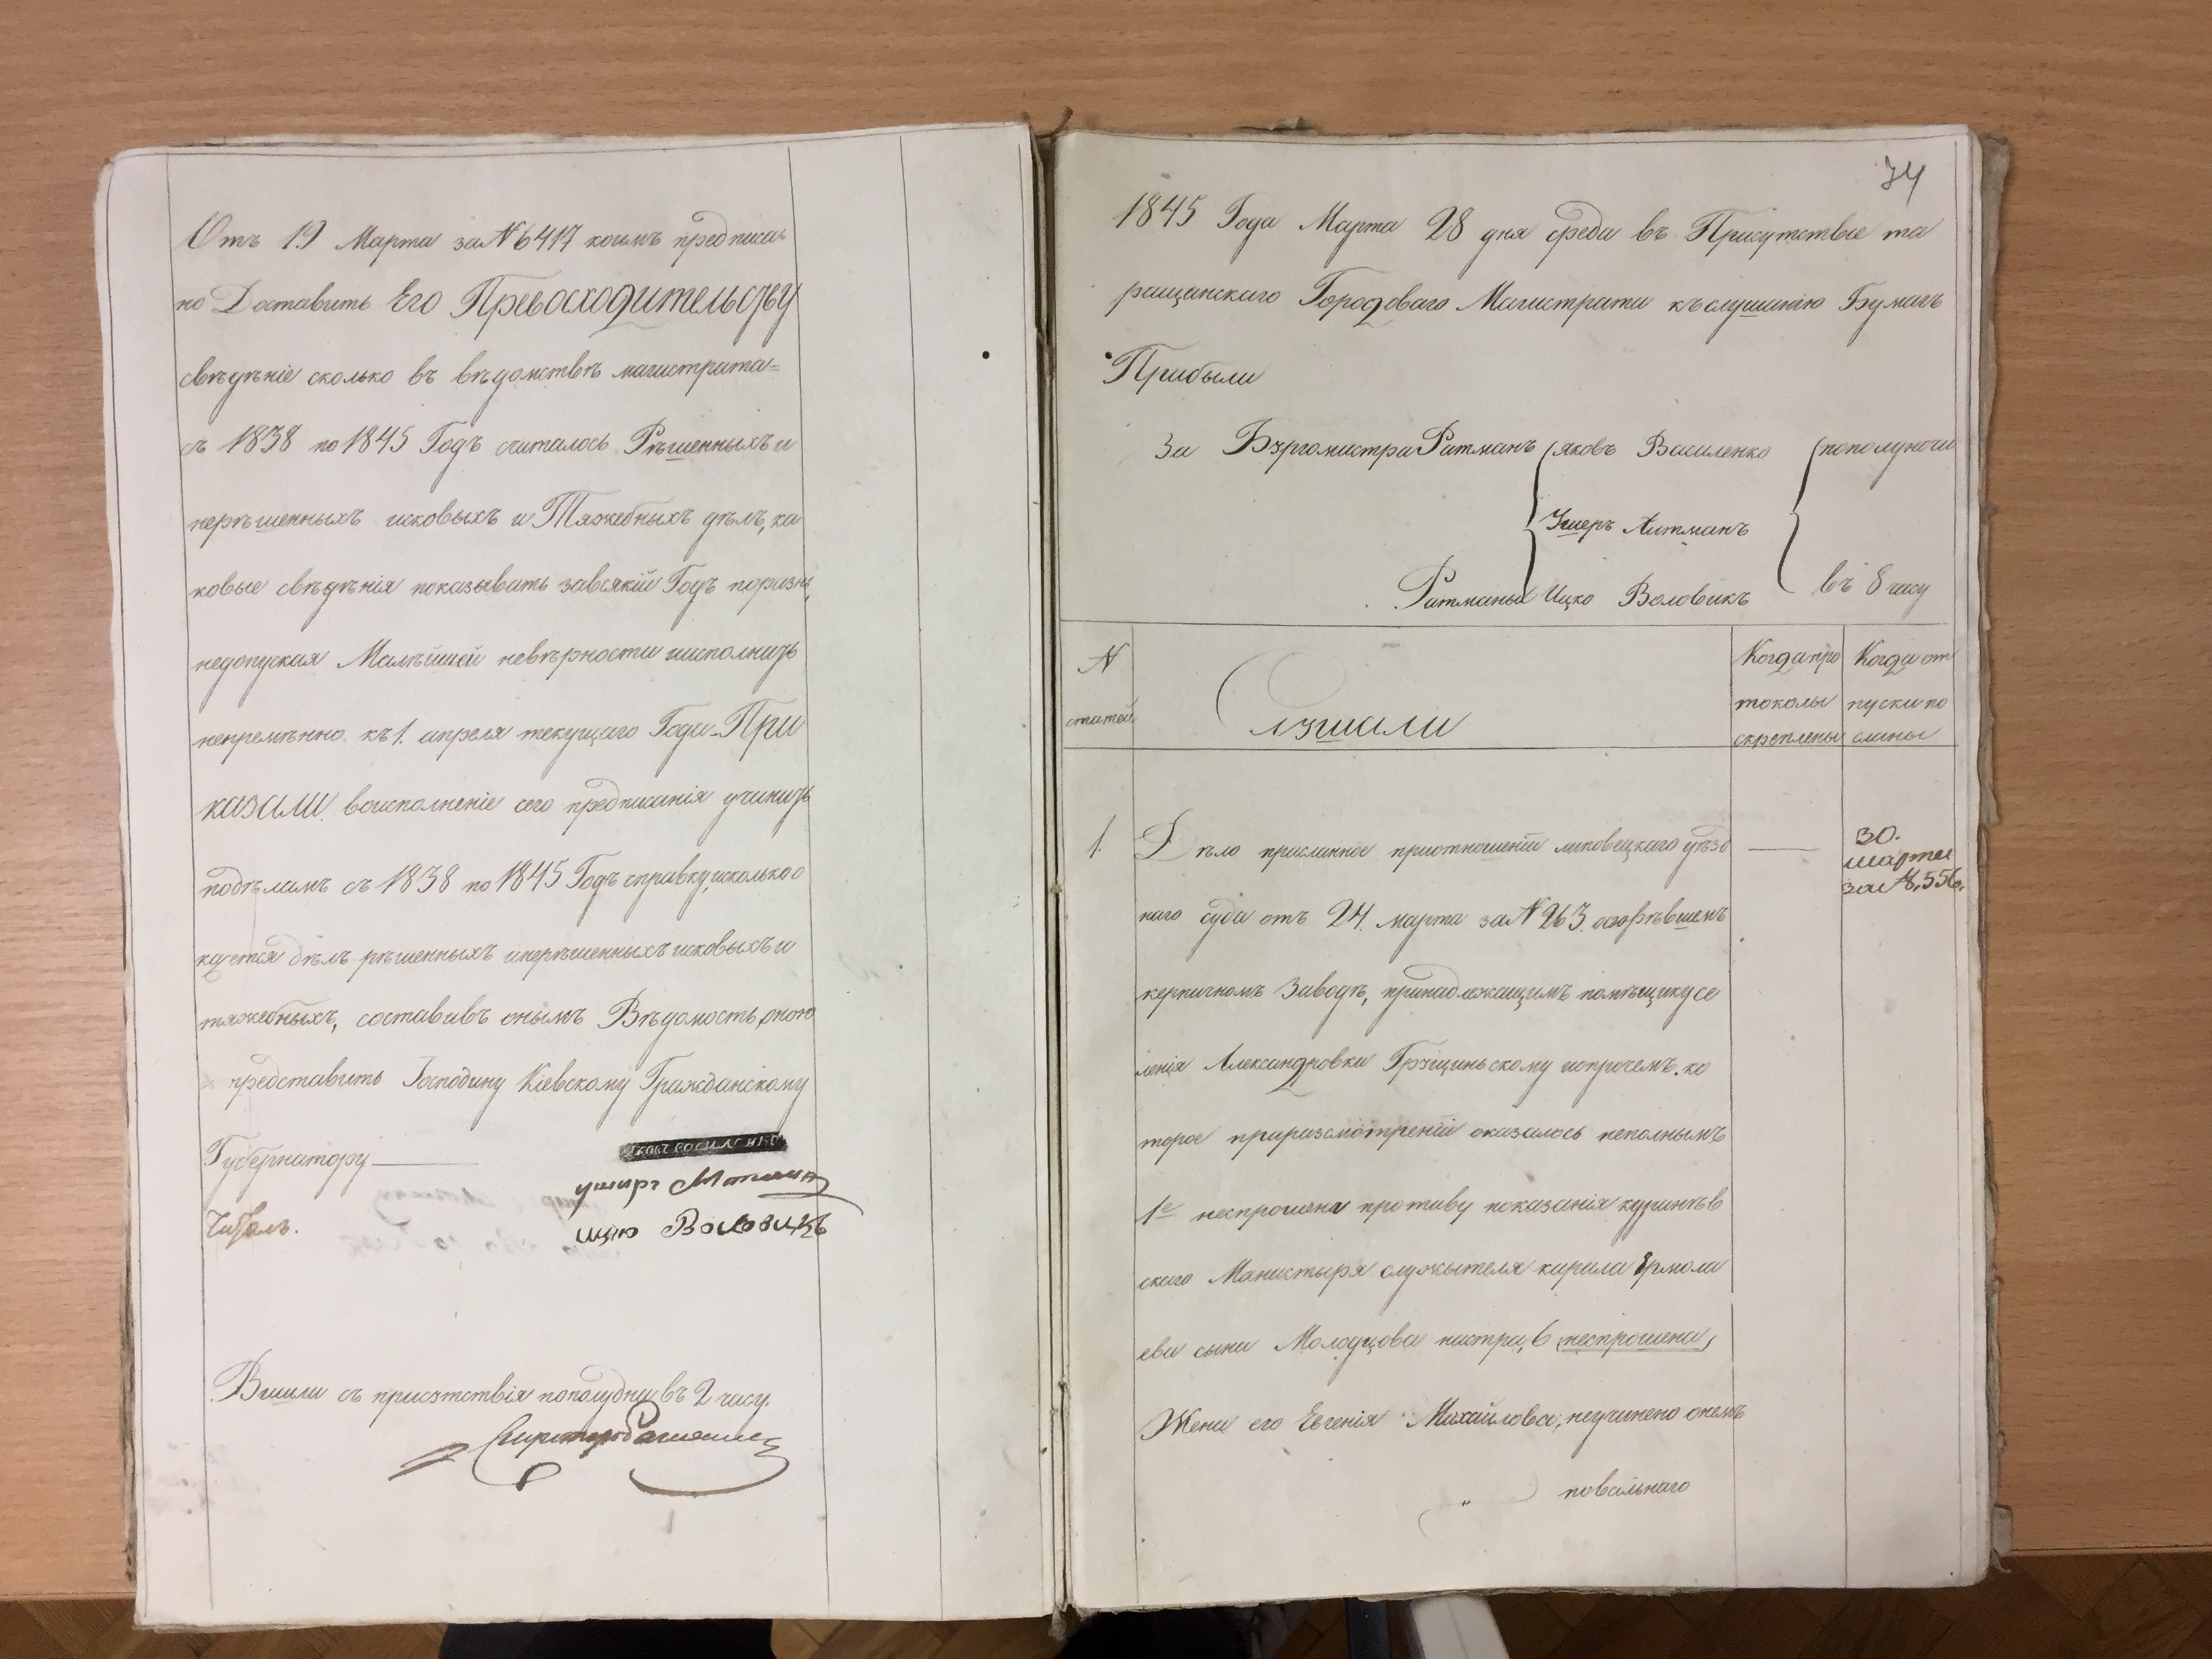 Отъ 19 Марта за N 6417 коимъ предписа
но Доставить Его Превосходительству
свѣдѣніе сколько въ вѣдомствѣ магистрата=
съ 1838 по 1845 Годъ считалось Рѣшенныхъ и
нерѣшенныхъ исковыхъ и Тяжебныхъ дѣлъ, ка
ковые свѣдѣнія показывать завсякій Годъ порознь,
недопуская Малѣйшей невѣрности иисполнить
непремѣнно къ 1. апреля текущаго Года_ При
казали. воисполненіе сего предписанія учинить
подѣламъ съ 1838 по 1845 Годъ справку, исколько о
кажется дѣлъ рѣшенныхъ инерѣшенныхъ исковыхъ и
тяжебныхъ, составивъ онымъ Вѣдомость, оною
представить Господину Кіевскому Гражданскому
Губернатору
Яковъ Василенко
ушеръ
ицко Воловикъ
Вишли съ присутствія пополудну въ 2 часу.
74
1845 Года Марта 28 дня среда въ Присутствіе та
ращанскаго Городоваго Магистрата къ слушанію Бумагъ
Прибыли
За Бургомистра Ратманъ Яковъ Василенко пополуночи
Ушеръ Литманъ
Ратманы Ицко Воловикъ въ 8 часу
N статей
Слушали
Когда про токолы скреплены
Когда от пуски по сланы
1. Дѣло присланное приотношеніи липовецкаго уѣзд
30. марта за N. 556.
наго суда отъ 24. марта за N 263. огорѣвшемъ
керпичномъ Заводѣ, принадлежащимъ помѣщику се
ленія Александровки Грущинъскому ипрочемъ. ко
торое приразсмотреніи оказалось неполнымъ
1е неспрошена противу показанія
скаго Манастыря служытеля кирила Ермола
ева сына Молодцова настра, 6 (неспрошена)
Жена его Евгенія Михайлова, неучинено онемъ
повальнаго